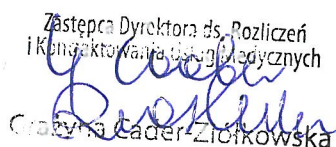 Zastępca Dyrektora ds. Rozliczeń
i Kontraktowania Usług Medycznych
Grażyna Cader-Ziółkowska